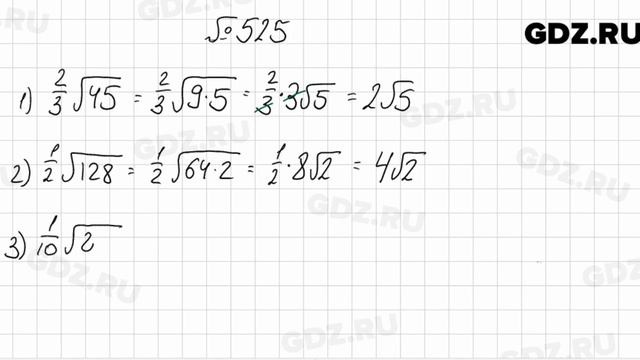 №525
GDZ.RU
1) 2/3 √45 = 2/3 √9·5 = 2/3 · 3√5 = 2√5
2) 1/2 √128 = 1/2 √64·2 = 1/2 · 8√2 = 4√2
3) 1/10 √2
GDZ.RU
GDZ.RU
GDZ.RU
GDZ.RU
GDZ.RU
GDZ.RU
GDZ.RU
GDZ.RU